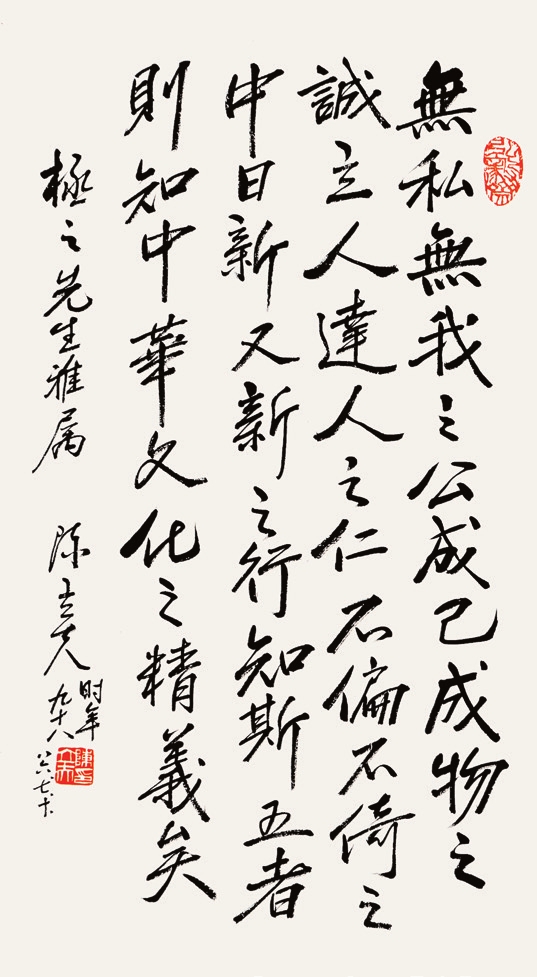 無私無我之公成己成物之
誠立人達人之仁不偏不倚之
中日新又新之行知斯五者
則知中華文化之精義矣
極之先生雅属 陳立夫
时年
九十八
八六、七、十、